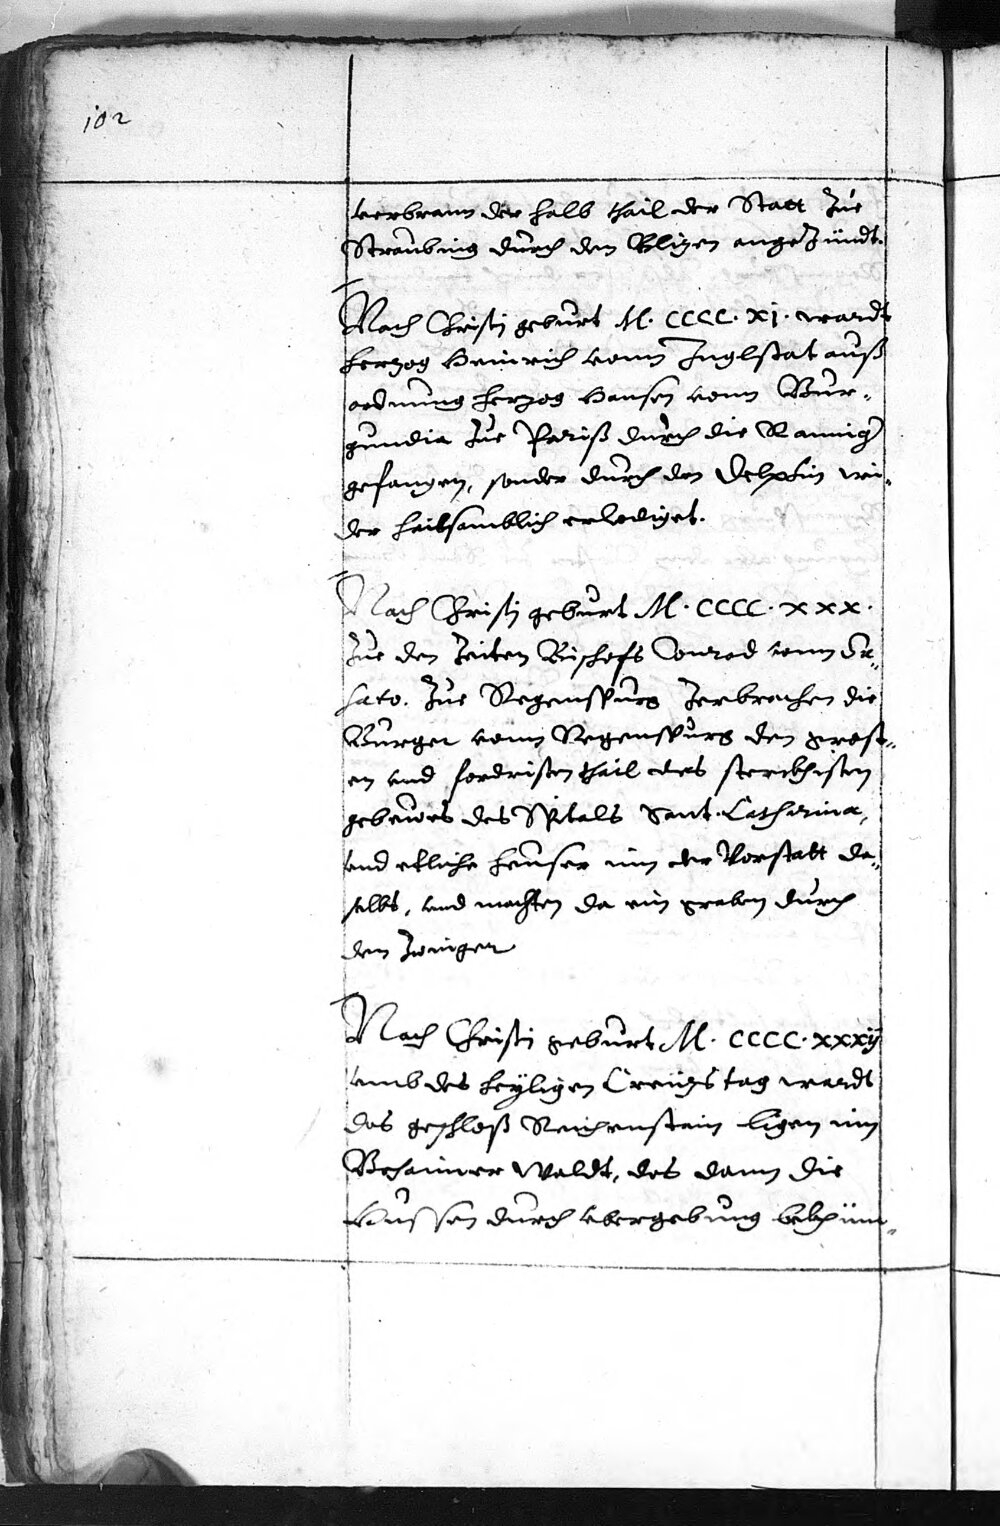 102
verbrann der halb thail der Statt Zue
Straubing durch den Blizen angeZündt.
Nach Christj geburt M. CCCC. XI. wardt
herzog Heinrich vonn Inglstat auß
ordnung herzog Hansen vonn Bur-
gundia Zue Pariß durch die
gefangen, sonder durch den Delphin wi-
der hailsamblich erlediget.
Nach Christj geburt M. CCCC. XXX.
Zue den Zeiten Bischofs Conrad vonn
Zue Regenspurg Zerbrachen die
Burger vonn Regenspurg den grost-
en vnd fordristen thail des sterckhisten
gebewes des Spitals Sant. Catharina,
vnd etliche heuser inn der Vorstatt da-
selbs, vnd machten da ein graben durch
den Zwinger
Nach Christi geburt M. CCCC. XXXij
vmb des heyligen Creuzs tag wardt
das geschloß Reichenstain ligen inn
Behaimer Waldt, das dann die
Hussen durch vbergebung